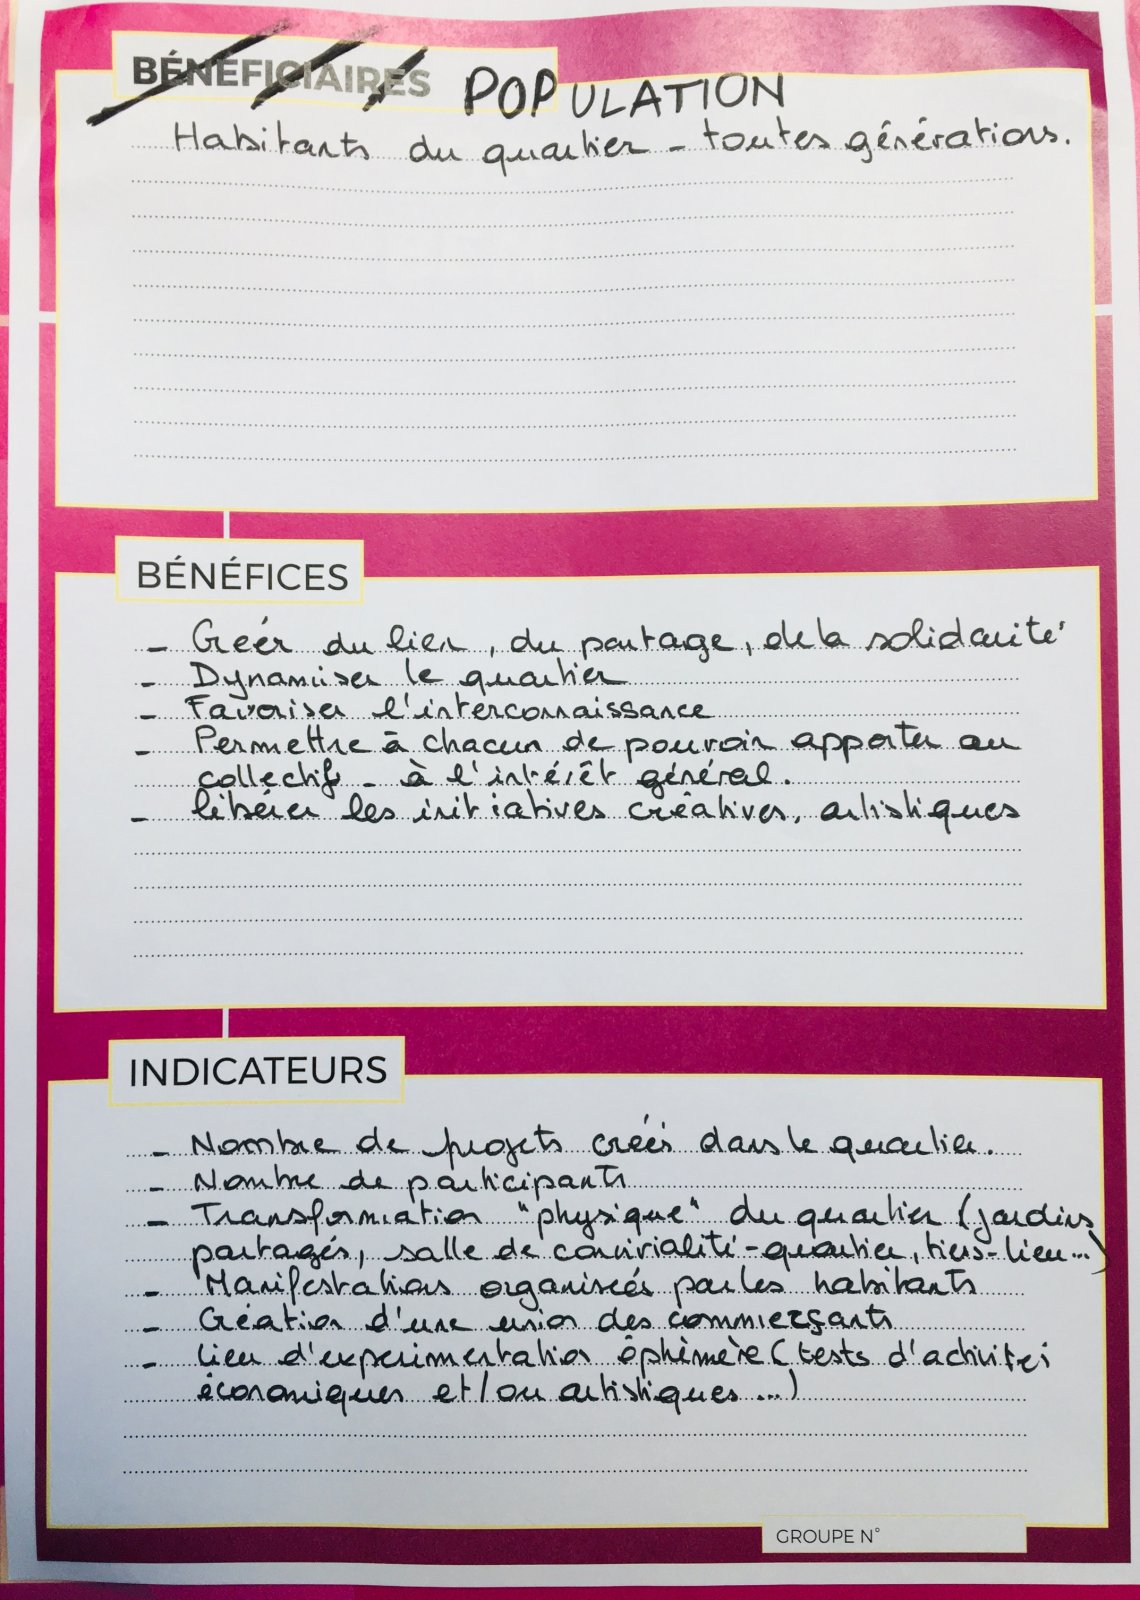 BÉNÉFICIAIRES POPULATION
Habitants du quartier - toutes générations.
BÉNÉFICES
- Créér du lien, du partage, de la solidarité
- Dynamiser le quartier
- Favoriser l'interconnaissance
- Permettre à chacun de pouvoir apporter au
collectif - à l'intérêt général.
- libérer les initiatives créatives, artistiques
INDICATEURS
- Nombre de projets créés dans le quartier.
- Nombre de participants
- Transformation "physique" du quartier (jardins
partagés, salle de convivialité-quartier, tiers-lieu...)
- Manifestations organisées par les habitants
- Création d'une union des commerçants
- Lieu d'expérimentation éphémère (tests d'activités
économiques et/ou artistiques...)
GROUPE N°